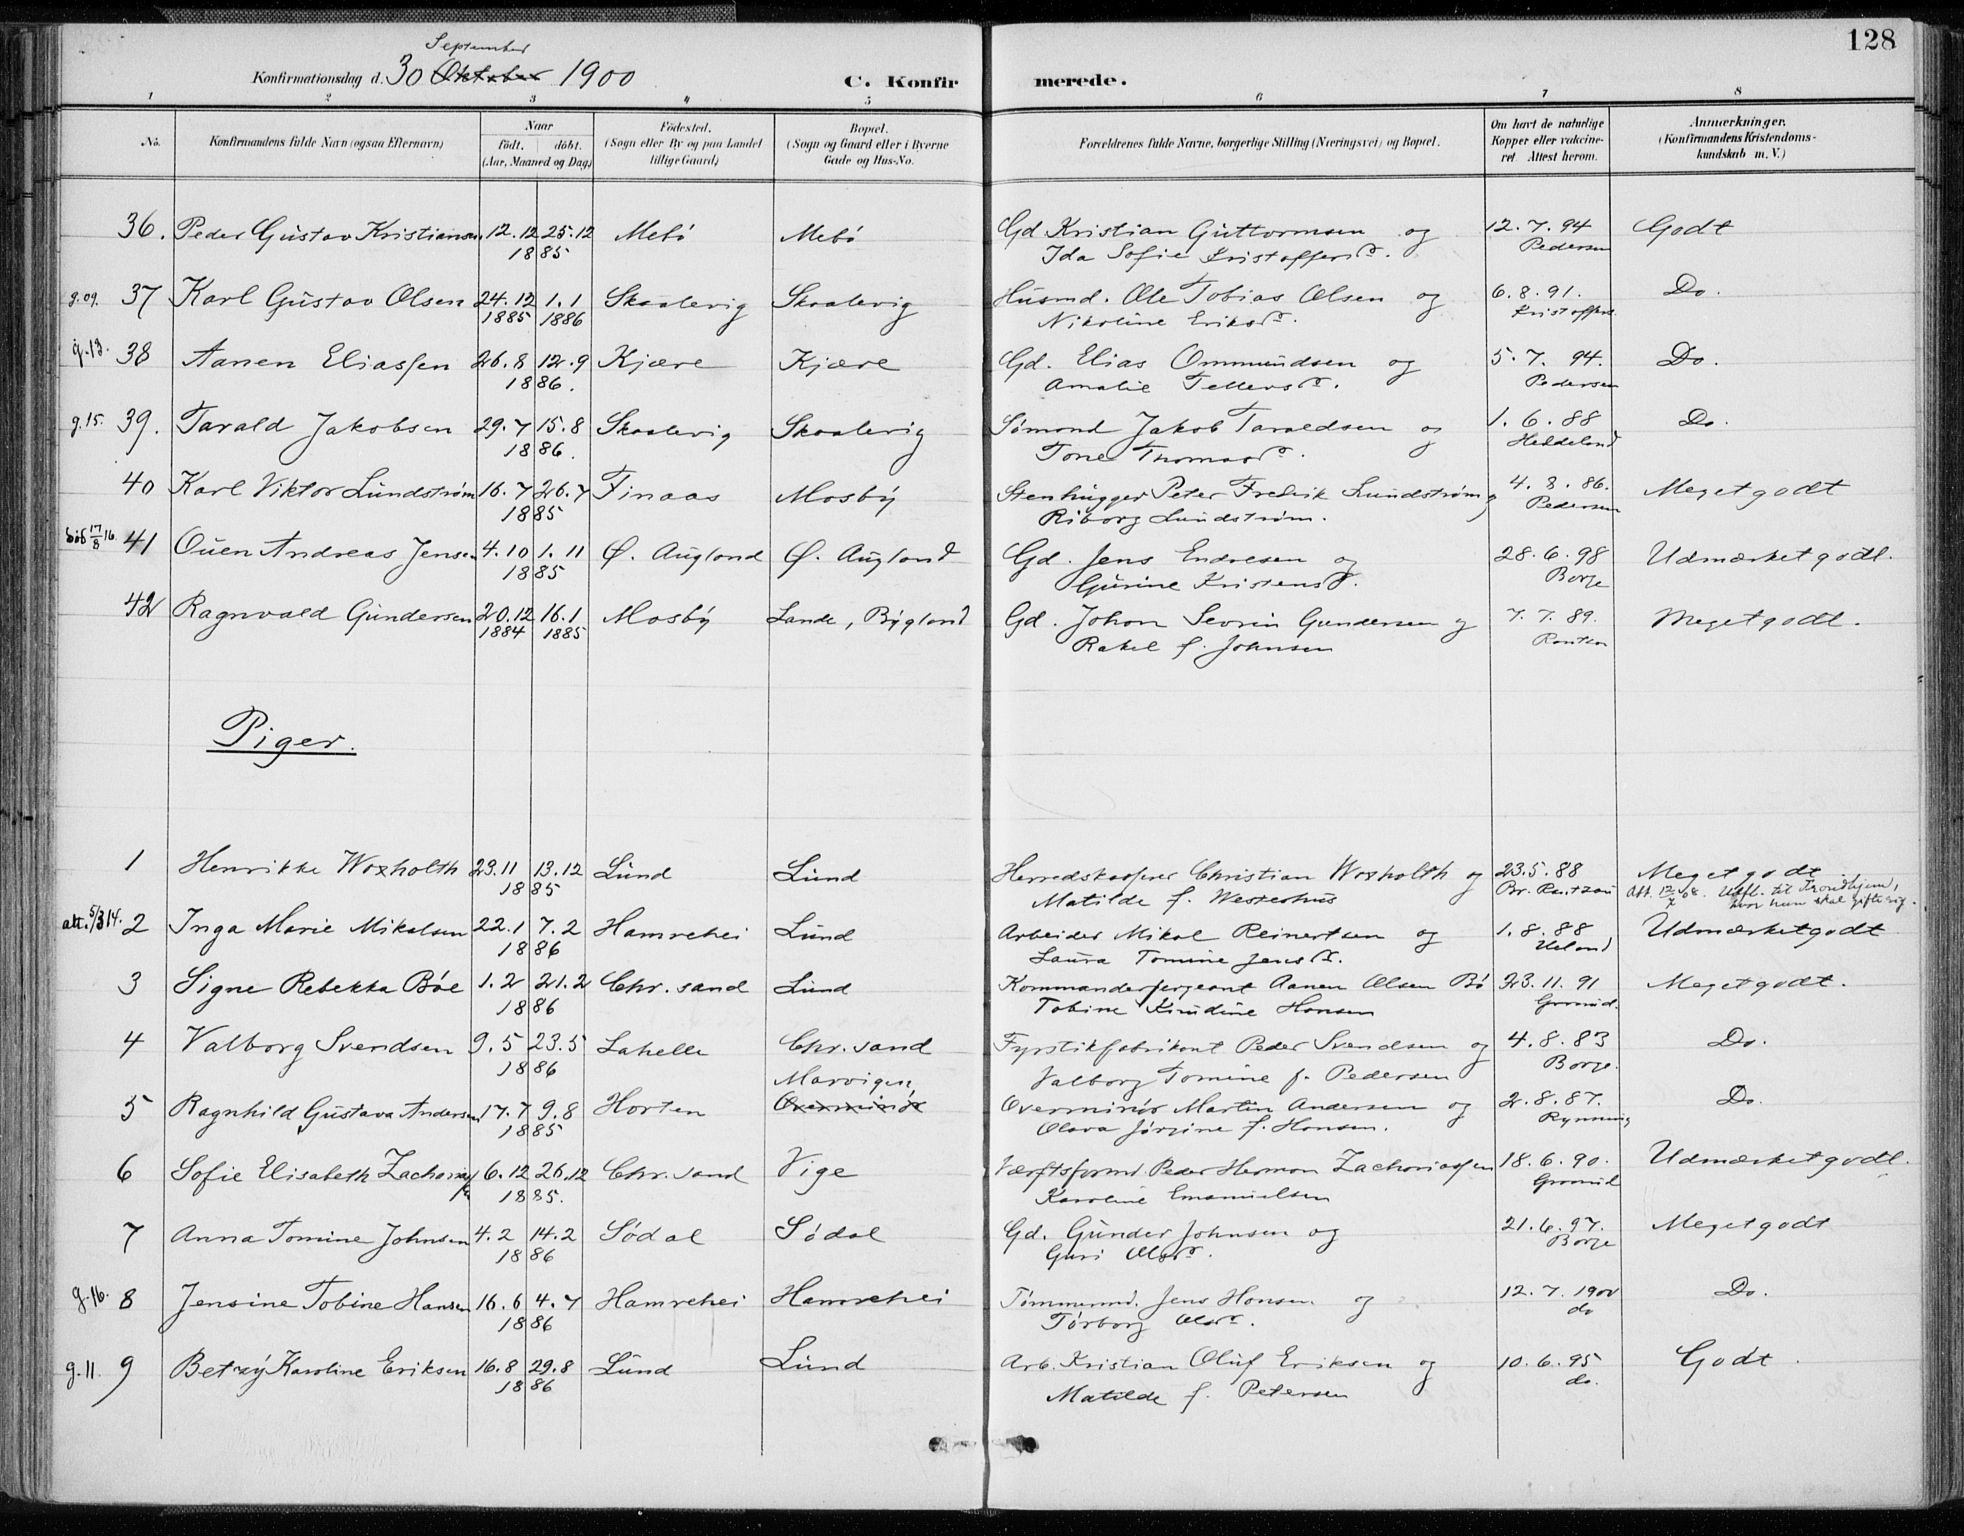 128
September
Konfirmationsdag d. 30 Oktober 1900 C. Konfirmerede.
1 2 3 4 5 6 7 8
No. Konfirmandens fulde Navn (ogsaa Efternavn) Naar født. døbt. (Aar, Maaned og Dag) Fødested. (Sogn eller By og paa Landet tillige Gaard) Bopæl. (Sogn og Gaard eller i Byerne Gade og Hus-No. Forældrenes fulde Navne, borgerlige Stilling (Næringsvei) og Bopæl. Om havt de naturlige Kopper eller vakcineret Attest herom. Anmærkninger. (Konfirmandens Kristendomskundskab m. V.)
36. Peder Gustav Kristiansen 12.12 25.12 Mebø Mebø Gd Kristian Guttormsen og 12.7.94 Godt
1885 Ida Sofie Kristoffersd. Pedersen
g.09. 37 Karl Gustav Olsen 24.12 1.1 Skaalevig Skaalevig Husmd. Ole Tobias Olsen og 6.8.91. Do.
1885 1886 Nikoline Eriksd. Kristoffers.
g.13. 38 Aanen Eliassen 26.8 12.9 Kjære Kjære Gd. Elias Ommundsen og 5.7.94. Do.
1886. Amalie Tellersd. Pedersen
g.15. 39. Tarald Jakobsen 29.7 15.8 Skaalevig Skaalevig Sømand Jakob Taraldsen og 1.6.88 Do.
1886. Tone Thomasd. Heddeland
40 Karl Viktor Lundstrøm 16.7 26.7 Finaas Mosby Stenhugger Peter Fredrik Lundstrøm og 4.8.86. Meget godt
1885 Riborg Lundstrøm. Pedersen
17/8 16. 41 Ouen Andreas Jensen 4.10 1.11 Ø. Augland Ø. Augland Gd. Jens Endresen og 28.6.98 Udmærket godt.
1885 Gurine Kristensd. Borge
42 Ragnvald Gundersen 20.12 16.1 Mosby Lande, Bygland Gd. Johan Sevrin Gundersen og 7.7.89. Meget godt.
1884 1885 Rakel f. Johnsen
Piger.
1 Henrikke Woxholth 23.11 13.12 Lund Lund Herredskasserer Christian Woxholth og 23.5.88 Meget godt
1885 Matilde f. Westerhus Br. Rantzau Att. 08. Udfl. til Trondhjem,
hvor hun skal gifte sig.
att. 5/3 14. 2 Inga Marie Mikalsen 22.1 7.2 Hamrehei Lund Arbeider Mikal Reinertsen og 1.8.88 Udmærket godt
1886 Laura Tomine Jensd. Ueland
3 Signe Rebekka Bøe 1.2 21.2 Chr.sand Lund Kommandersergeant Aanen Olsen Bø 23.11.91 Meget godt.
1886 Tobine Knudine Hansen
4 Valborg Svendsen 9.5 23.5 Lahelle Chr.sand Fyrstikfabrikant Peder Svendsen og 4.8.83 Do.
1886 Valborg Tomine f. Pedersen Borge.
Marvigen,
5 Ragnhild Gustava Andersen 17.7 9.8 Horten Overminør Overminør Martin Andersen og 2.8.87. Do.
1885 Olava Jørgine f. Hansen. Rynning
6 Sofie Elisabeth Zachariassen 6.12 26.12 Chr.sand Vige Værftsformd. Peder Herman Zachariassen 18.6.90. Udmærket godt.
1885. Karoline Emanuelsen
7 Anna Tomine Johnsen 4.2 14.2 Sødal Sødal Gd. Gunder Johnsen og 21.6.97. Meget godt
1886 Guri Olsd. Borge
g.16. 8 Jensine Tobine Hansen 16.6 4.7 Hamrehei Hamrehei Tømmermd. Jens Hansen og 12.7.1900 Do.
1886 Tørborg Olsd. do
g.11. 9 Betzy Karoline Eriksen 16.8 29.8 Lund Lund Arb. Kristian Oluf Eriksen og 10.6.95 Godt.
1886 Matilde f. Petersen do.